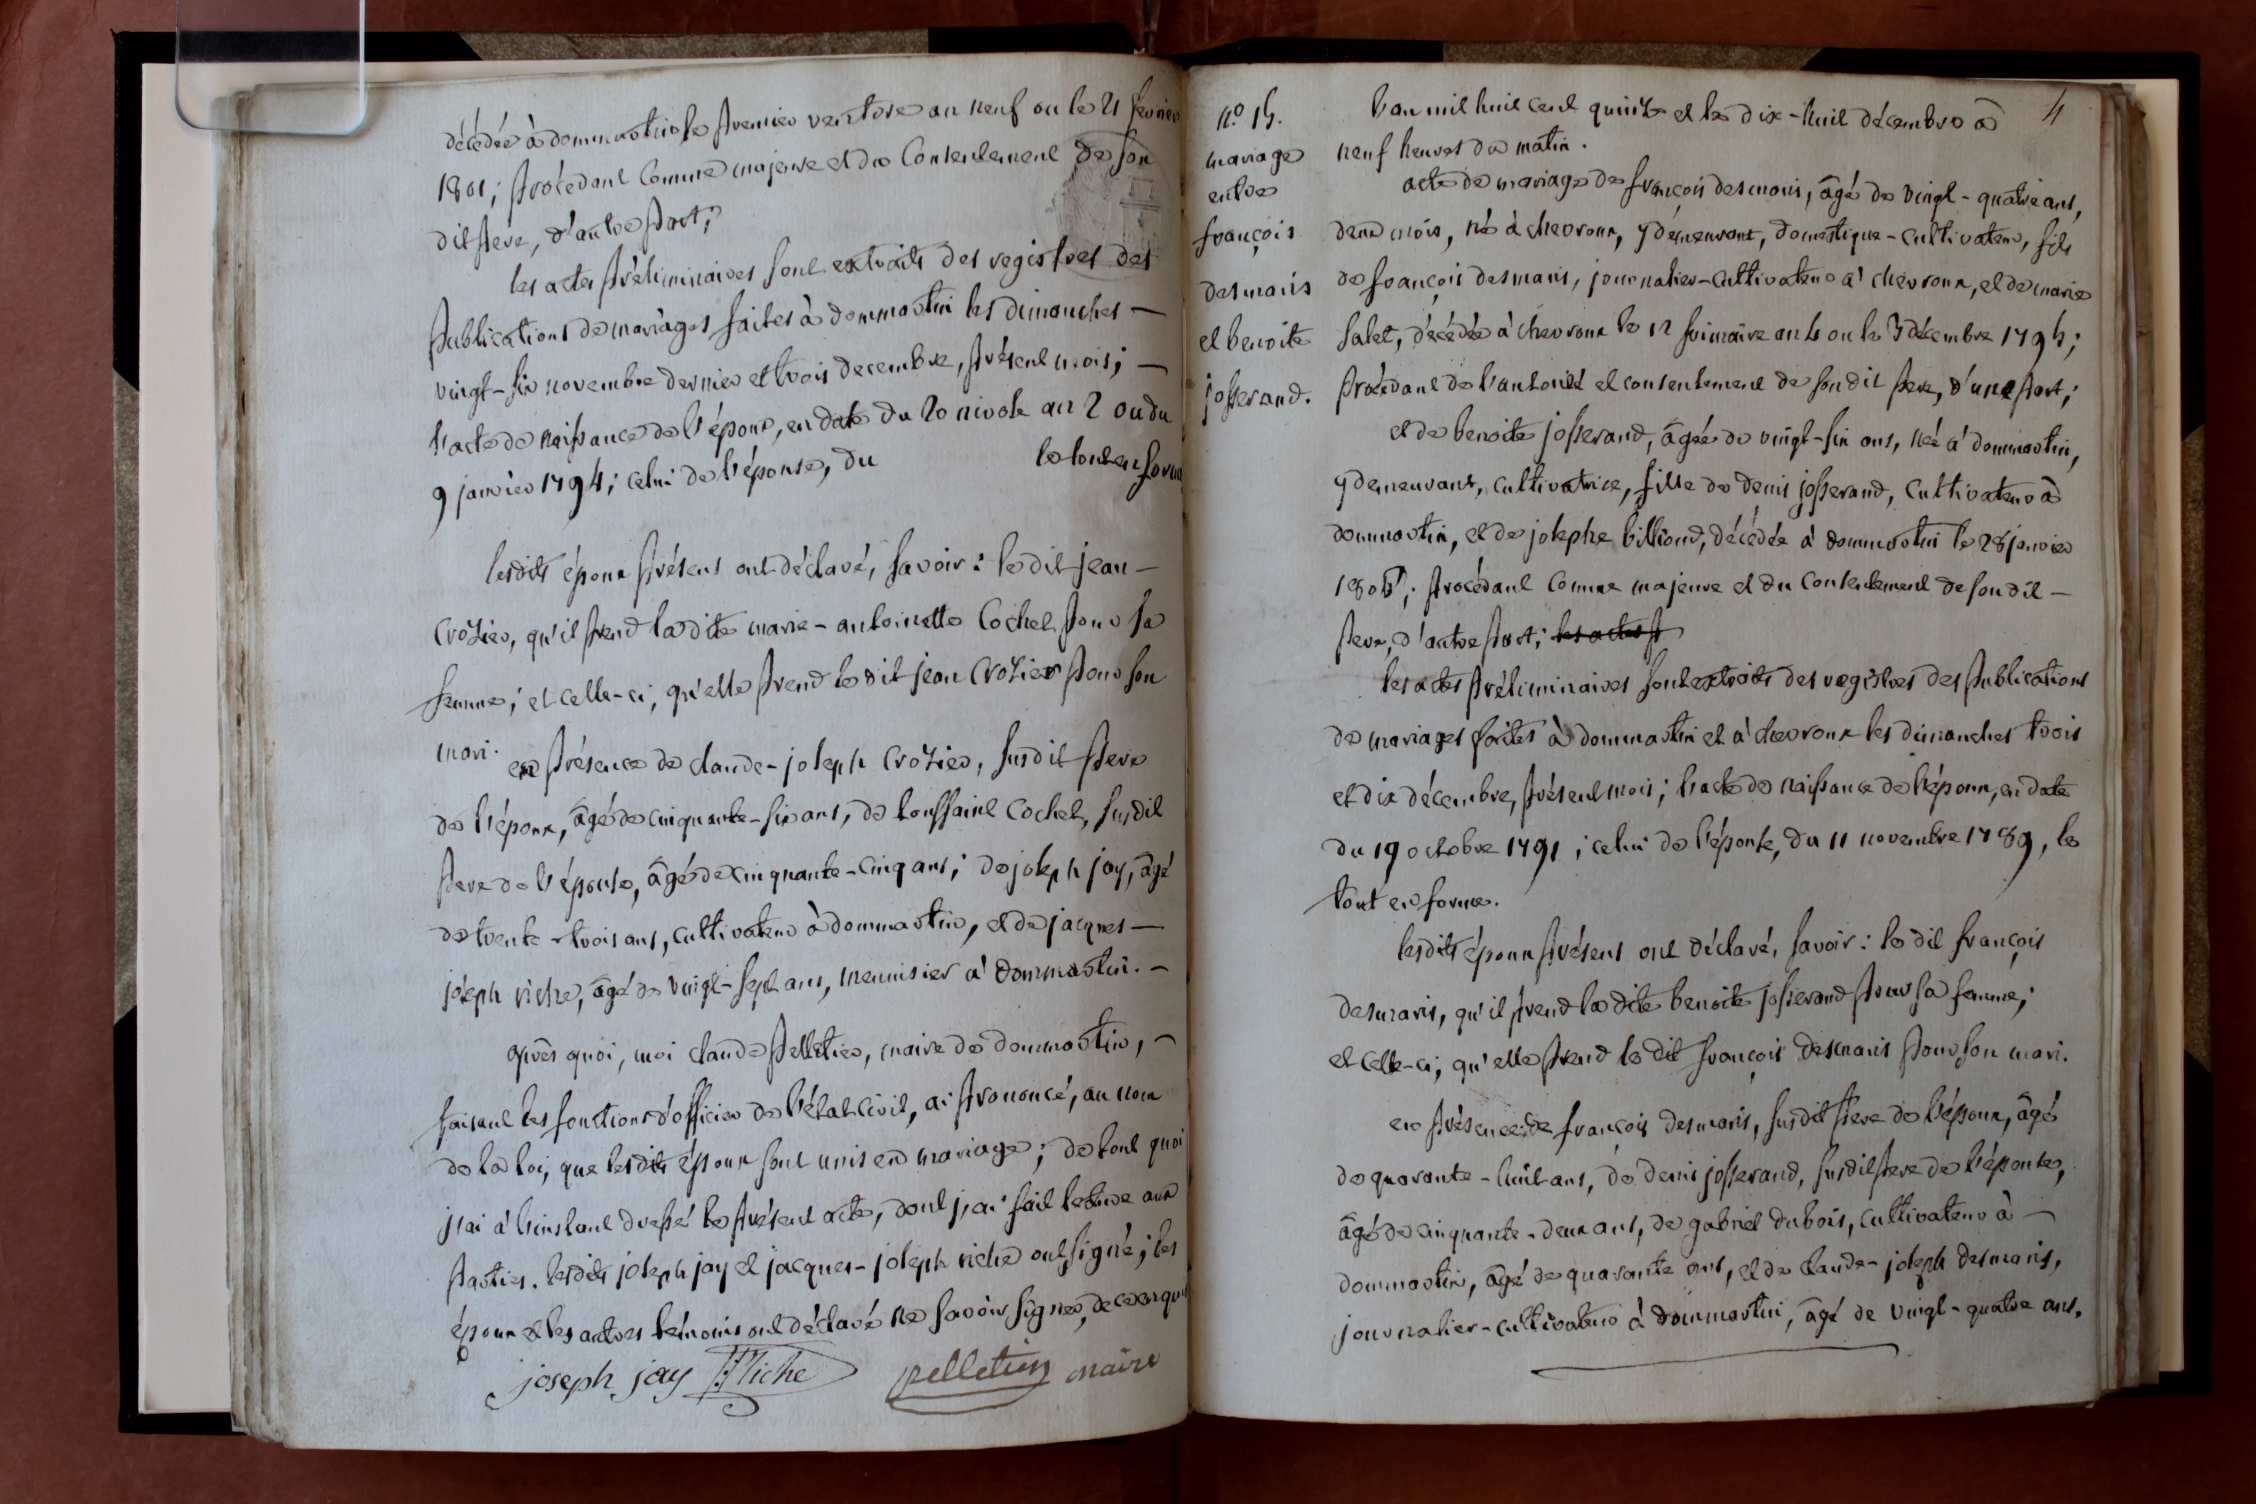 décédée à dommartin le premier ventose an neuf ou le 21 février
1801; procédant comme majeure et du consentement de son
dit père, d'autre part;
les actes préliminaires sont extraits des registres des
publications de mariages faites à dommartin les dimanches —
vingt-six novembre dernier et trois decembre, présent mois; —
l'acte de naissance de l'époux, en date du 20 nivose an 2 ou du
9 janvier 1794; celui de l'épouse, du le tout en forme
lesdits époux présens ont déclaré, savoir: le dit jean —
crozier, qu'il prend la dite marie-antoinette cochet pour sa
femme; et celle-ci, qu'elle prend le dit jean crozier pour son
mari.
en présence de claude-joseph crozier, susdit père
de l'époux, âgé de cinquante-six ans, de toussaint cochet, susdit
père de l'épouse, âgé de cinquante-cinq ans; de joseph jay, âgé
de trente-trois ans, cultivateur à dommartin, et de jacques —
joseph riche, âgé de vingt-sept ans, menuisier à dommartin. —
après quoi, moi claude pelletier, maire de dommartin, —
faisant les fonctions d'officier de l'état civil, ai prononcé, au nom
de la loi, que lesdits époux sont unis en mariage; de tout quoi
j'ai à l'instant dressé le présent acte, dont j'ai fait lecture aux
parties. lesdits joseph jay et jacques-joseph riche ont signé; les
époux et les autres témoins ont déclaré ne savoir signer, de ce enquis
joseph jay Riche pelletier maire
4
n.º 15.
mariage
entre
françois
desmaris
et benoite
josserand.
l'an mil huit cent quinze et le dix-huit décembre à
neuf heures du matin.
acte de mariage de françois desmaris, âgé de vingt-quatre ans,
deux mois, né à chevroux, y demeurant, domestique-cultivateur, fils
de françois desmaris, journalier-cultivateur à chevroux, et de marie
salet, décédée à chevroux le 12 frimaire an 4 ou le 3 décembre 1795;
procédant de l'autorité et consentement de son dit père, d'une part;
et de benoite josserand, âgée de vingt-six ans, née à dommartin,
y demeurant, cultivatrice, fille de denis josserand, cultivateur à
dommartin, et de josephe billioud, décédée à dommartin le 28 janvier
procédant comme majeure et du consentement de son dit —
père, d'autre part; les actes p
les actes préliminaires sont extraits des registres des publications
de mariages faites à dommartin et à chevroux les dimanches trois
et dix décembre, présent mois; l'acte de naissance de l'époux, en date
du 19 octobre 1791; celui de l'épouse, du 11 novembre 1789, le
tout en forme.
lesdits époux présens ont déclaré, savoir: le dit françois
desmaris, qu'il prend la dite benoite josserand pour sa femme;
et celle-ci, qu'elle prend le dit françois desmaris pour son mari.
en présence de françois desmaris, susdit père de l'époux, âgé
de quarante-huit ans, de denis josserand, susdit père de l'épouse,
âgé de cinquante-deux ans, de gabriel dubois, cultivateur à —
dommartin, âgé de quarante ans, et de claude-joseph desmaris,
journalier-cultivateur à dommartin, âgé de vingt-quatre ans.